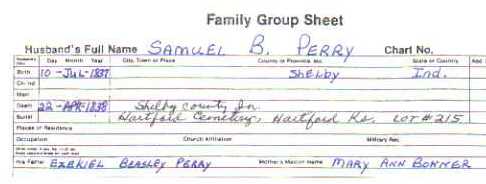 Family Group Sheet
Husband's Full Name SAMUEL B. PERRY Chart No.
Day Month Year City, Town or Place County or Province, etc. State or Country Add
Birth 10-JUL-1837 Shelby Ind.
Chr'nd
Marr
Death 22-APR-1898 Shelby county In.
Burial Hartford Cemetery, Hartford Ks. LOT #215
Places of Residence
Occupation Church Affiliation Military Rec.
His Father EZEKIEL BEASLEY PERRY Mother's Maiden Name MARY ANN BONNER